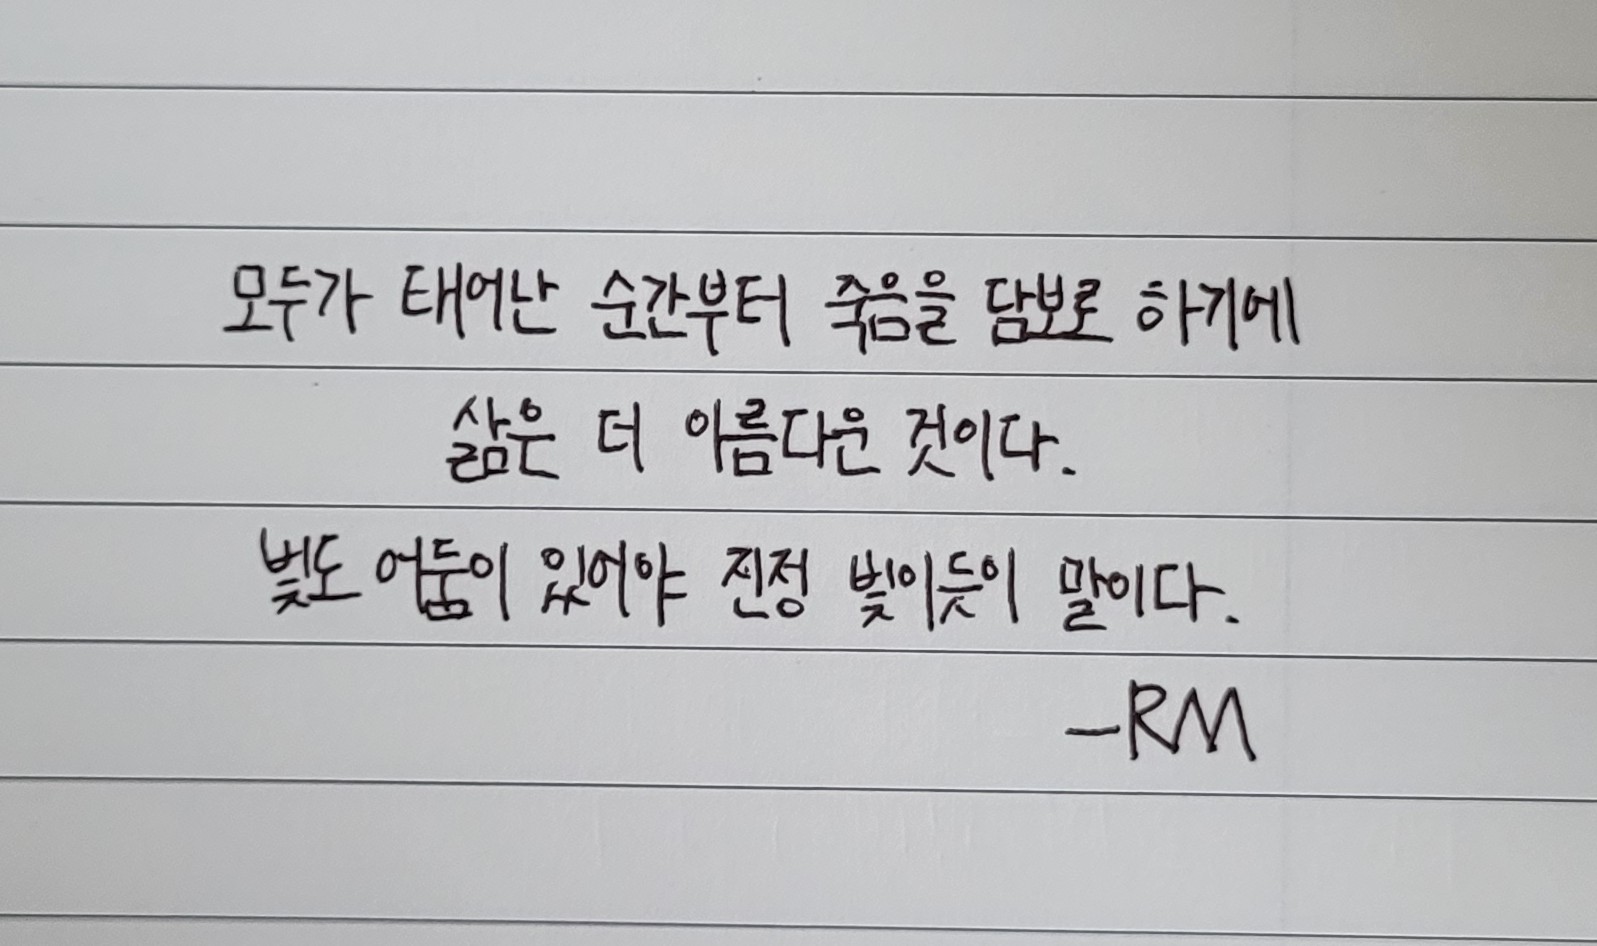 모두가 태어난 순간부터 죽음을 담보로 하기에
삶은 더 아름다운 것이다.
빛도 어둠이 있어야 진정 빛이듯이 말이다.
-RM